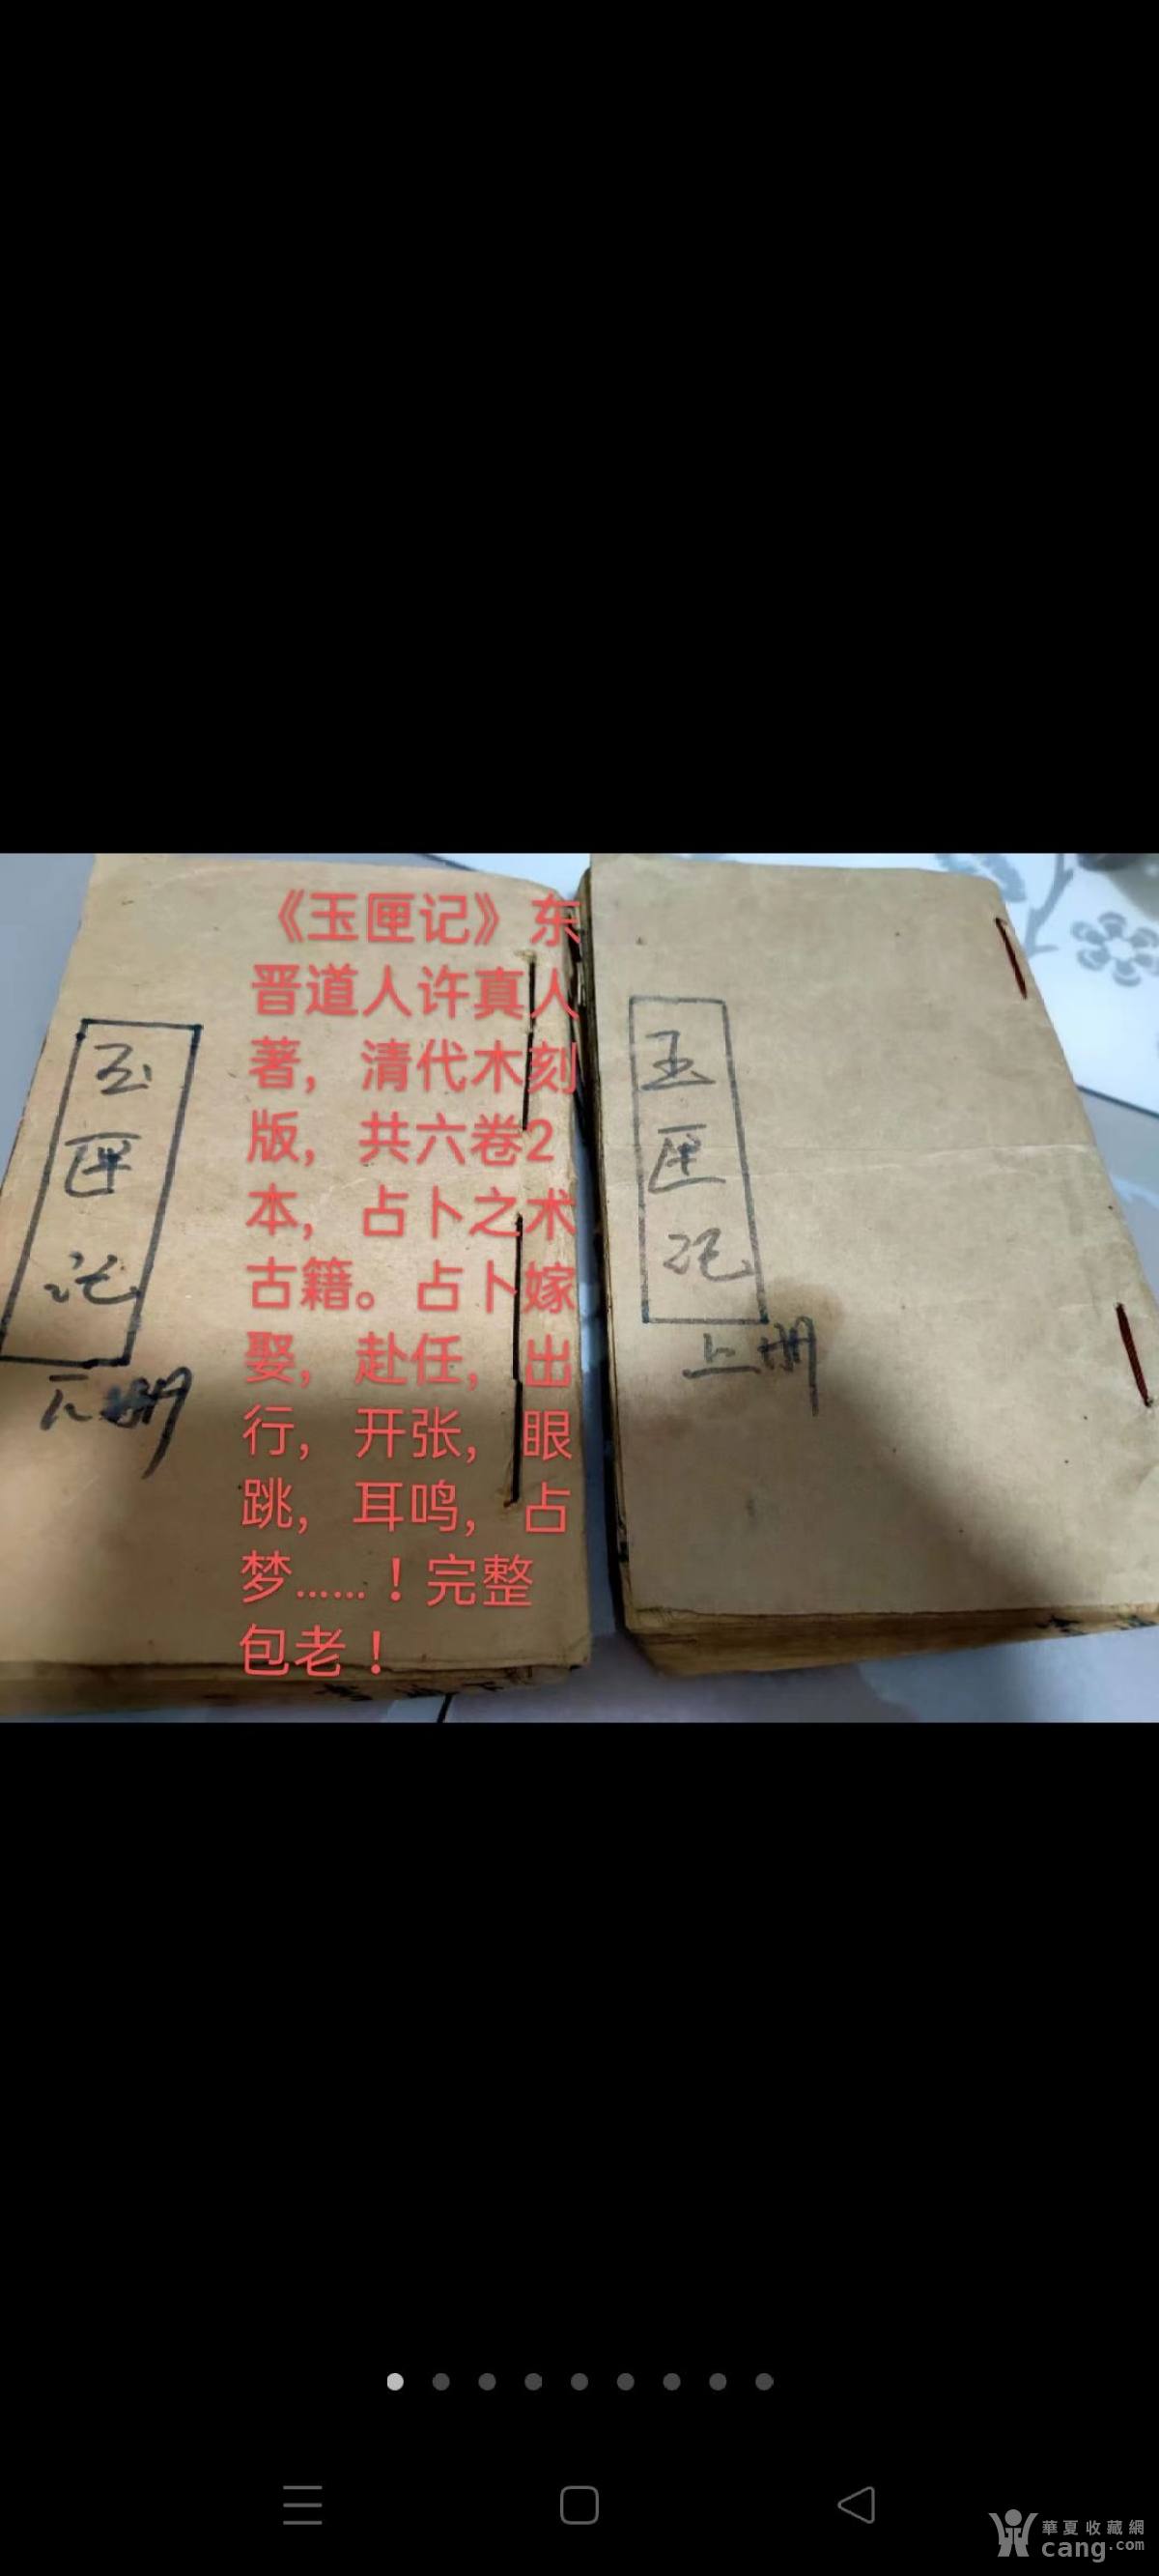 《玉匣记》东
晋道人许真人
著，清代木刻
版，共六卷2
本，占卜之术
古籍。占卜嫁
娶，赴任，出
行，开张，眼
跳，耳鸣，占
梦……！完整
包老！
玉匣记
下册
玉匣记
上册
華夏收藏網
cang.com